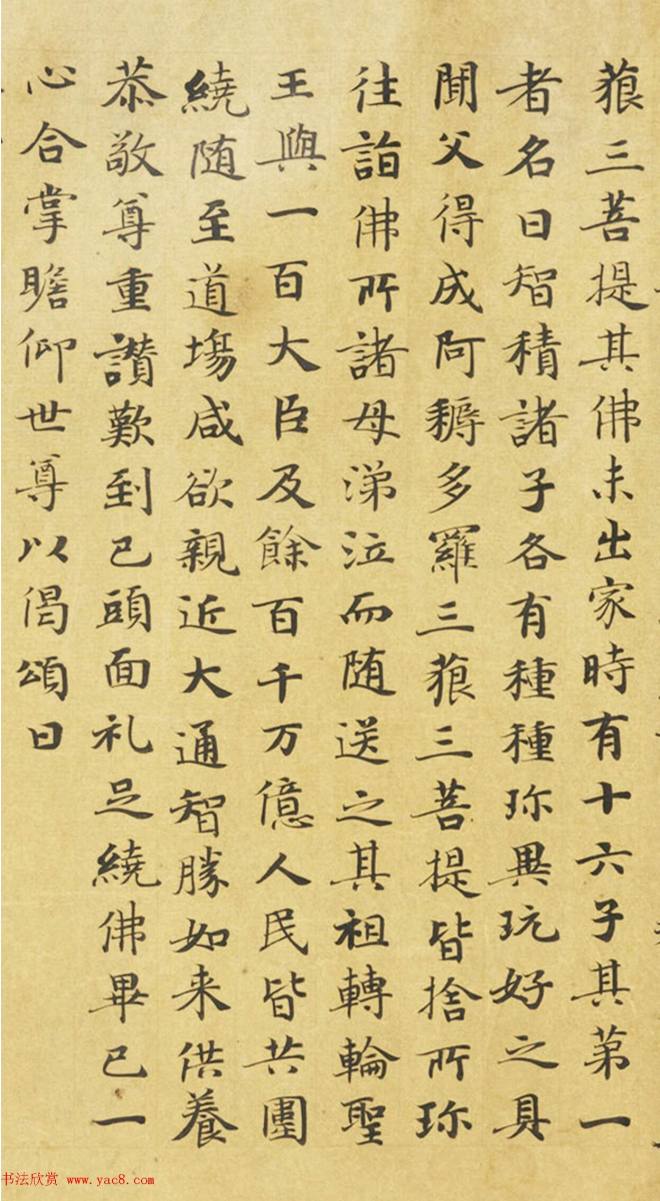 藐三菩提其佛未出家時有十六子其第一
者名曰智積諸子各有種種珎異玩好之具
聞父得成阿耨多羅三藐三菩提皆捨所珎
往詣佛所諸母涕泣而随送之其祖轉輪聖
王與一百大臣及餘百千万億人民皆共圍
繞随至道場咸欲親近大通智勝如来供養
恭敬尊重讃歎到已頭面礼足繞佛畢已一
心合掌瞻仰世尊以偈頌曰
书法欣赏 www.yac8.com